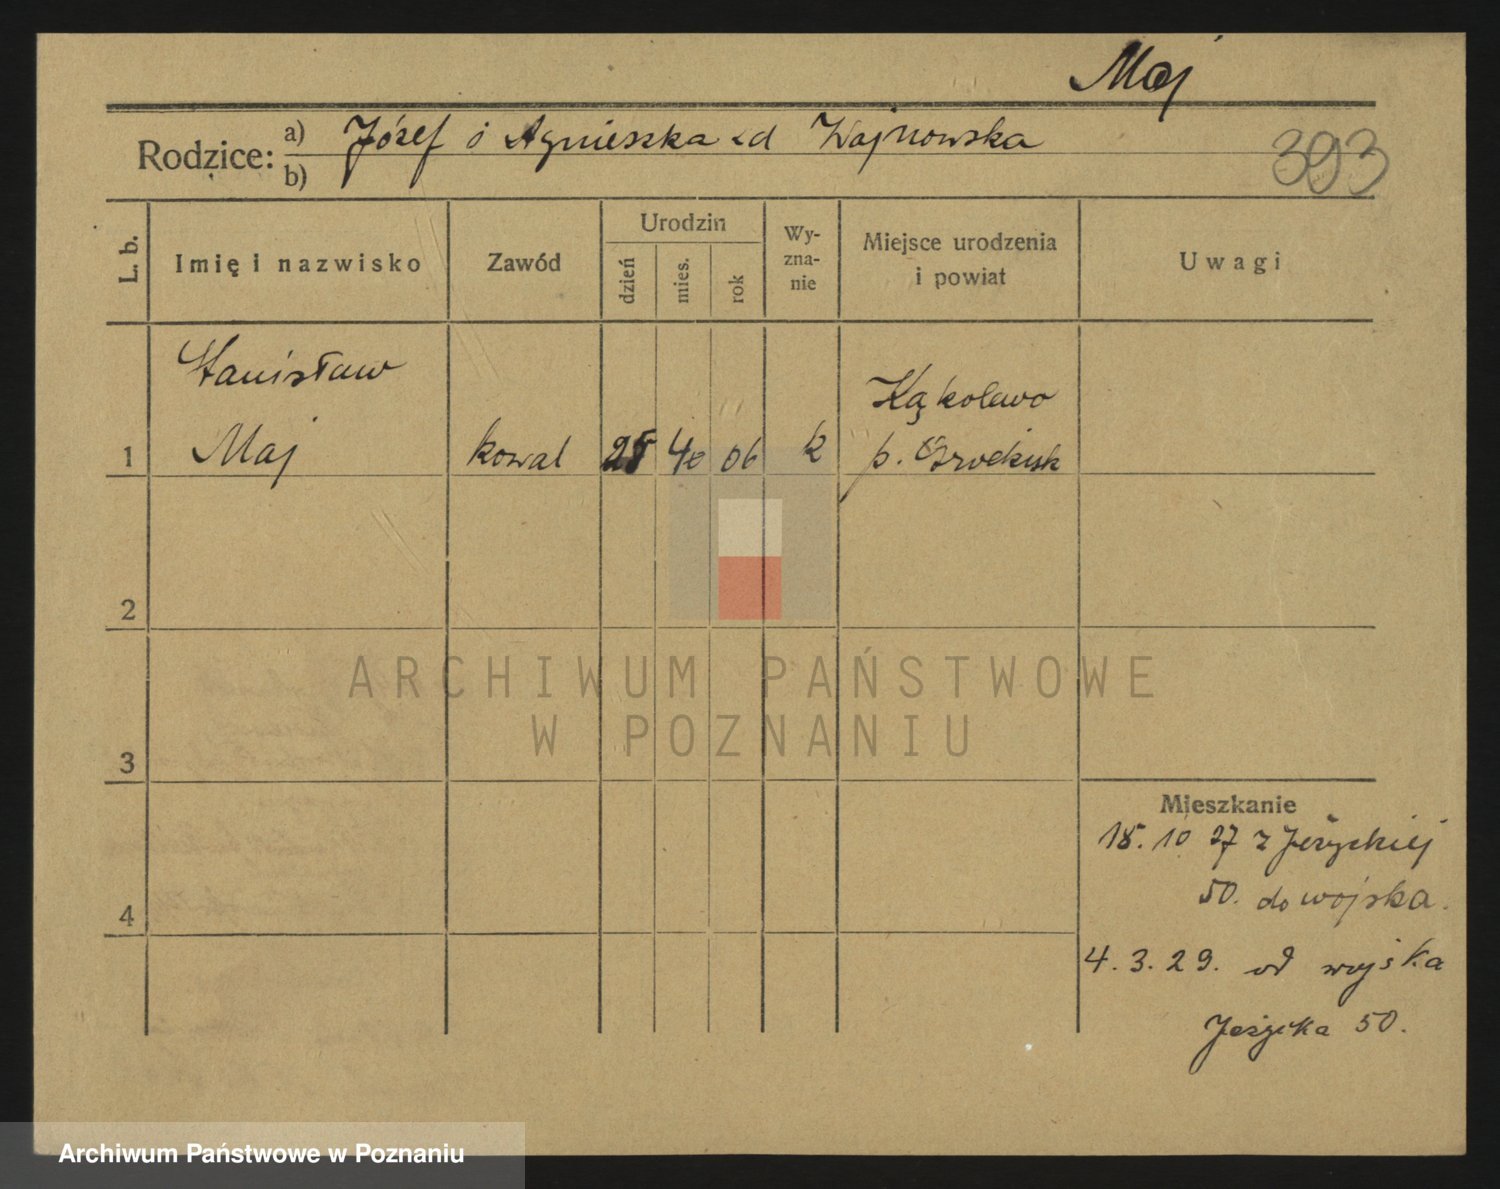 Maj
Rodzice: a) Józef i Agnieszka zd Wajnowska
b)
393
L. b. Imię i nazwisko Zawód Urodzin dzień mies. rok Wyznanie Miejsce urodzenia i powiat Uwagi
Stanisław
Kąkolewo
1 Maj kowal 25 06 k p. Grodzisk
2
ARCHIWUM PAŃSTWOWE
W POZNANIU
3
Mieszkanie
18. 10 27 z Jeżyckiej
50. do wojska.
4
4. 3. 29. od wojska
Jeżycka 50.
Archiwum Państwowe w Poznaniu